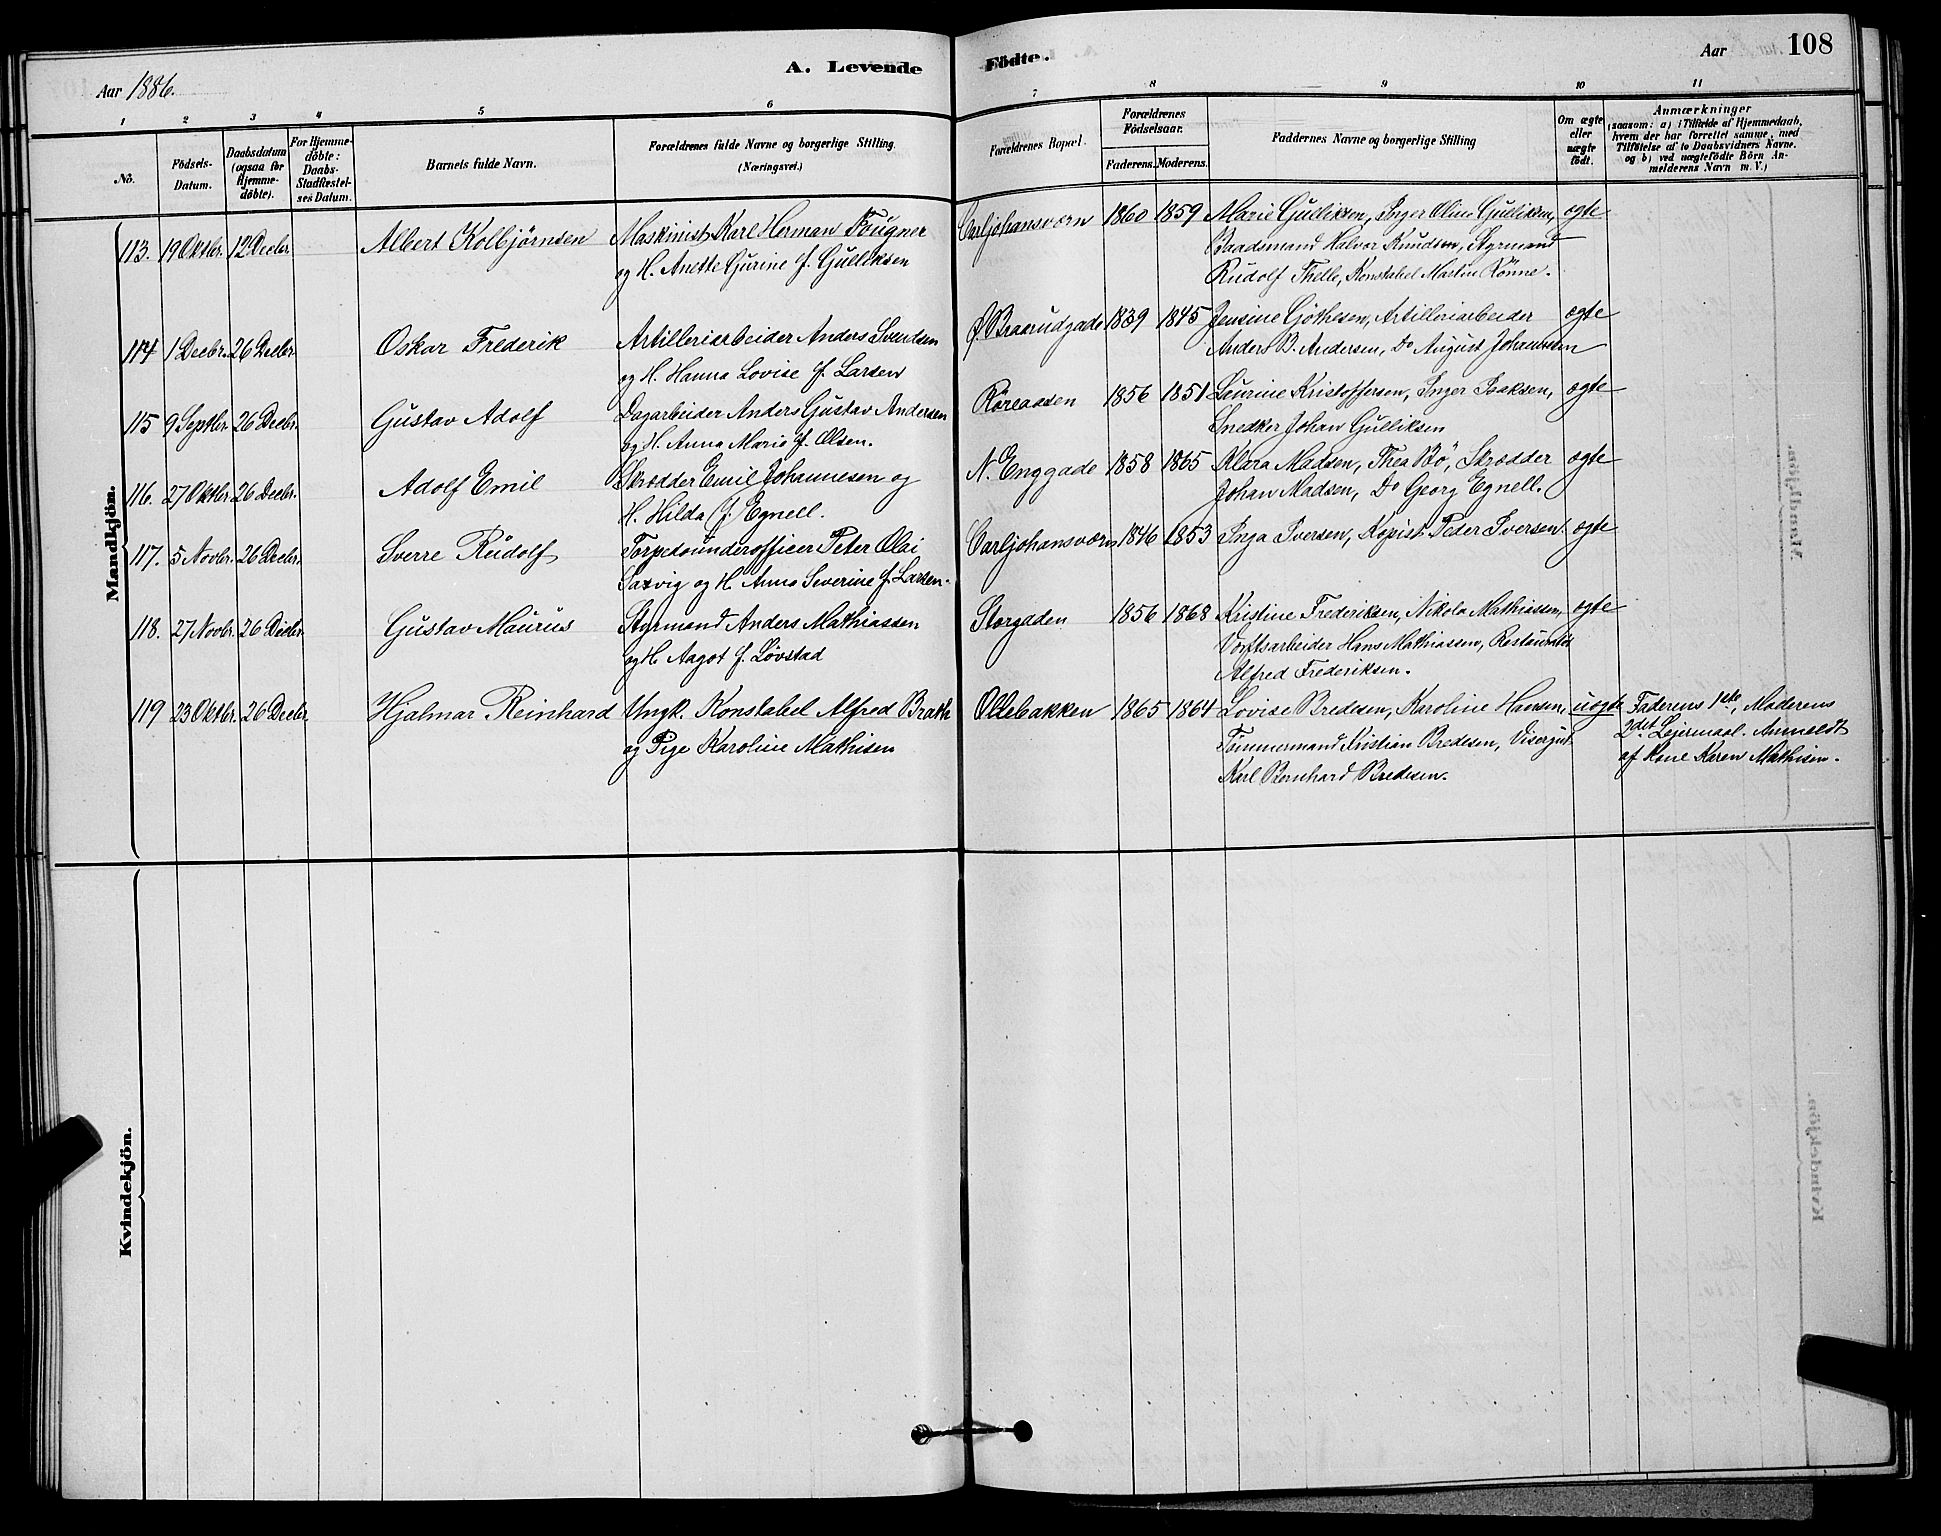 A. Levende Födte.
Aar 1886.
Aar 108
1 2 3 4 5 6 7 8 9 10 11
No.
Födsels-Datum.
Daabsdatum (ogsaa for Hjemmedöbte).
For Hjemmedöbte: Daabs-Stadfæstelses Datum.
Barnets fulde Navn.
Forældrenes fulde Navne og borgerlige Stilling. (Næringsvei.)
Forældrenes Bopæl.
Forældrenes Födselsaar.
Faderens. Moderens.
Faddernes Navne og borgerlige Stilling
Om ægte eller uægte födt.
Anmærkninger
(saasom: a) i Tilfælde af Hjemmedaab, hvem der har forrettet samme, med Tilföielse af to Daabsvidners Navne, og b) ved uægtefödte Börn Anmelderens Navn m. V.)
Mandkjön.
113. 19 Oktbr. 12 Decbr. Albert Kolbjørnsen Maskinist Karl Herman Fougner Carljohansværn 1860 1859 Marie Gulliksen, Inger Oline Gulliksen, ægte
og H. Anette Gurine f. Gulliksen Baadsmand Halvor Knudsen, Styrmand
Rudolf Thelle, Konstabel Martin Rønne.
114 1 Decbr. 26 Decbr. Oskar Frederik Artilleriarbeider Anders Svendsen Ø. Braarudgade 1839 1845 Jensine Gjøthesen, Artilleriarbeider ægte
og H. Hanna Lovise f. Larsen Anders B. Andersen, Do August Johannesen
115 9 Septbr. 26 Decbr. Gustav Adolf Dagarbeider Anders Gustav Andersen Røreaasen 1856 1851 Laurine Kristoffersen, Inger Isaksen, ægte
og H. Anna Marie f. Olsen. Snedker Johan Gulliksen
116. 27 Oktbr. 26 Decbr. Adolf Emil Skrædder Emil Johannesen og N. Enggade 1858 1865 Klara Madsen, Thea Bø, Skrædder ægte
H. Hilda f. Egnell. Johan Madsen, Do Georg Egnell.
117. 5 Novbr. 26 Decbr. Sverre Rudolf Torpedounderofficer Peter Olai Carljohansværn 1846 1853 Inga Iversen, Kopist Peder Iversen. ægte
Saxvig og H. Anna Severine f. Larsen.
118. 27 Novbr. 26 Decbr. Gustav Maurus Styrmand Anders Mathiassen Storgaden 1856 1868 Kristine Frederiksen, Nikola Mathiassen, ægte
og H. Aagot f. Løvstad Værftsarbeider Hans Mathiassen,
Alfred Frederiksen.
119 23 Oktbr. 26 Decbr. Hjalmar Reinhard Ungk. Konstabel Alfred Brath Ollebakken 1865 1864 Lovise Bredesen, Karoline Hansen, uægte Faderens 1ste, Moderens
og Pige Karoline Mathisen Tømmermand Kristian Bredesen, Visergut 2det Leiermaal. Anmeldt
Karl Bernhard Bredesen. af Kone Karen Mathisen.
Kvindekjön.